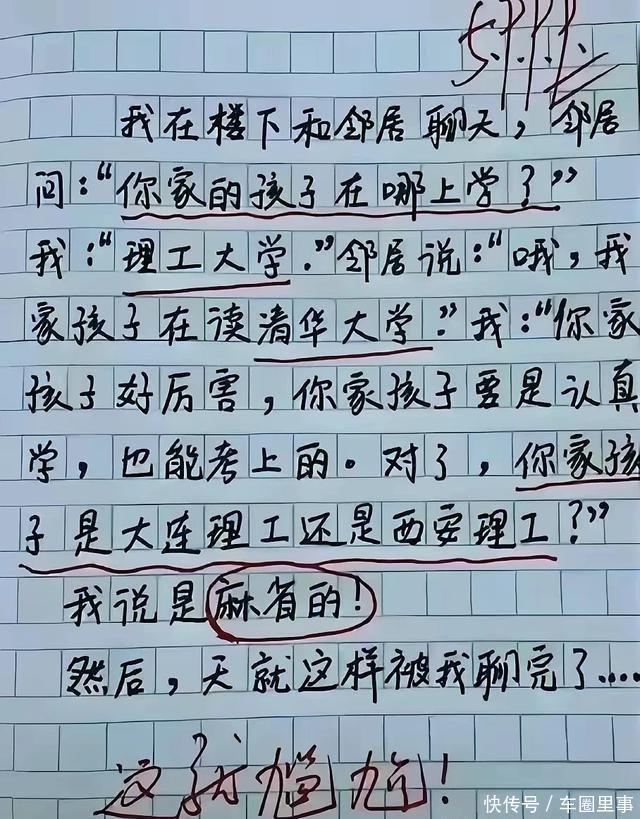 我在楼下和邻居聊天，邻居
问：“你家的孩子在哪上学？”
我：“理工大学.”邻居说：“哦，我
家孩子在读清华大学.”我：“你家
孩子好厉害，你家孩子要是认真
学，也能考上的。对了，你家孩
子是大连理工还是西安理工？”
我说是麻省的！
然后，天就这样被我聊完了....
这就尴尬！
快传号／车圈里事